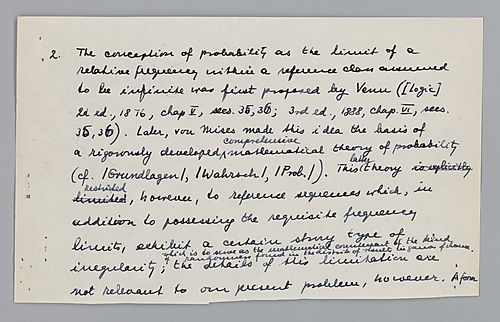 2. The conception of probability as the limit of a
relative frequency within a reference class assumed
to be infinite was first proposed by Venn ([Logic]
2d ed., 1876, chap V, secs. 35, 36; 3rd ed., 1888, chap. VI, secs.
35, 36). Later, von Mises made this idea the basis of
comprehensive
a rigorously developed, mathematical theory of probability
(cf. |Grundlagen|, |Wahrsch|, |Prob.|). This theory is explicitly
latter
restricted
limited, however, to reference sequences which, in
addition to possessing the requisite frequency
limits, exhibit a certain strong type of
which is to serve as the mathematical counterpart of the kind
of randomness found in the distrib. of results in games of chance.
irregularity; the details of this limitation are
not relevant to our present problem, however. A form